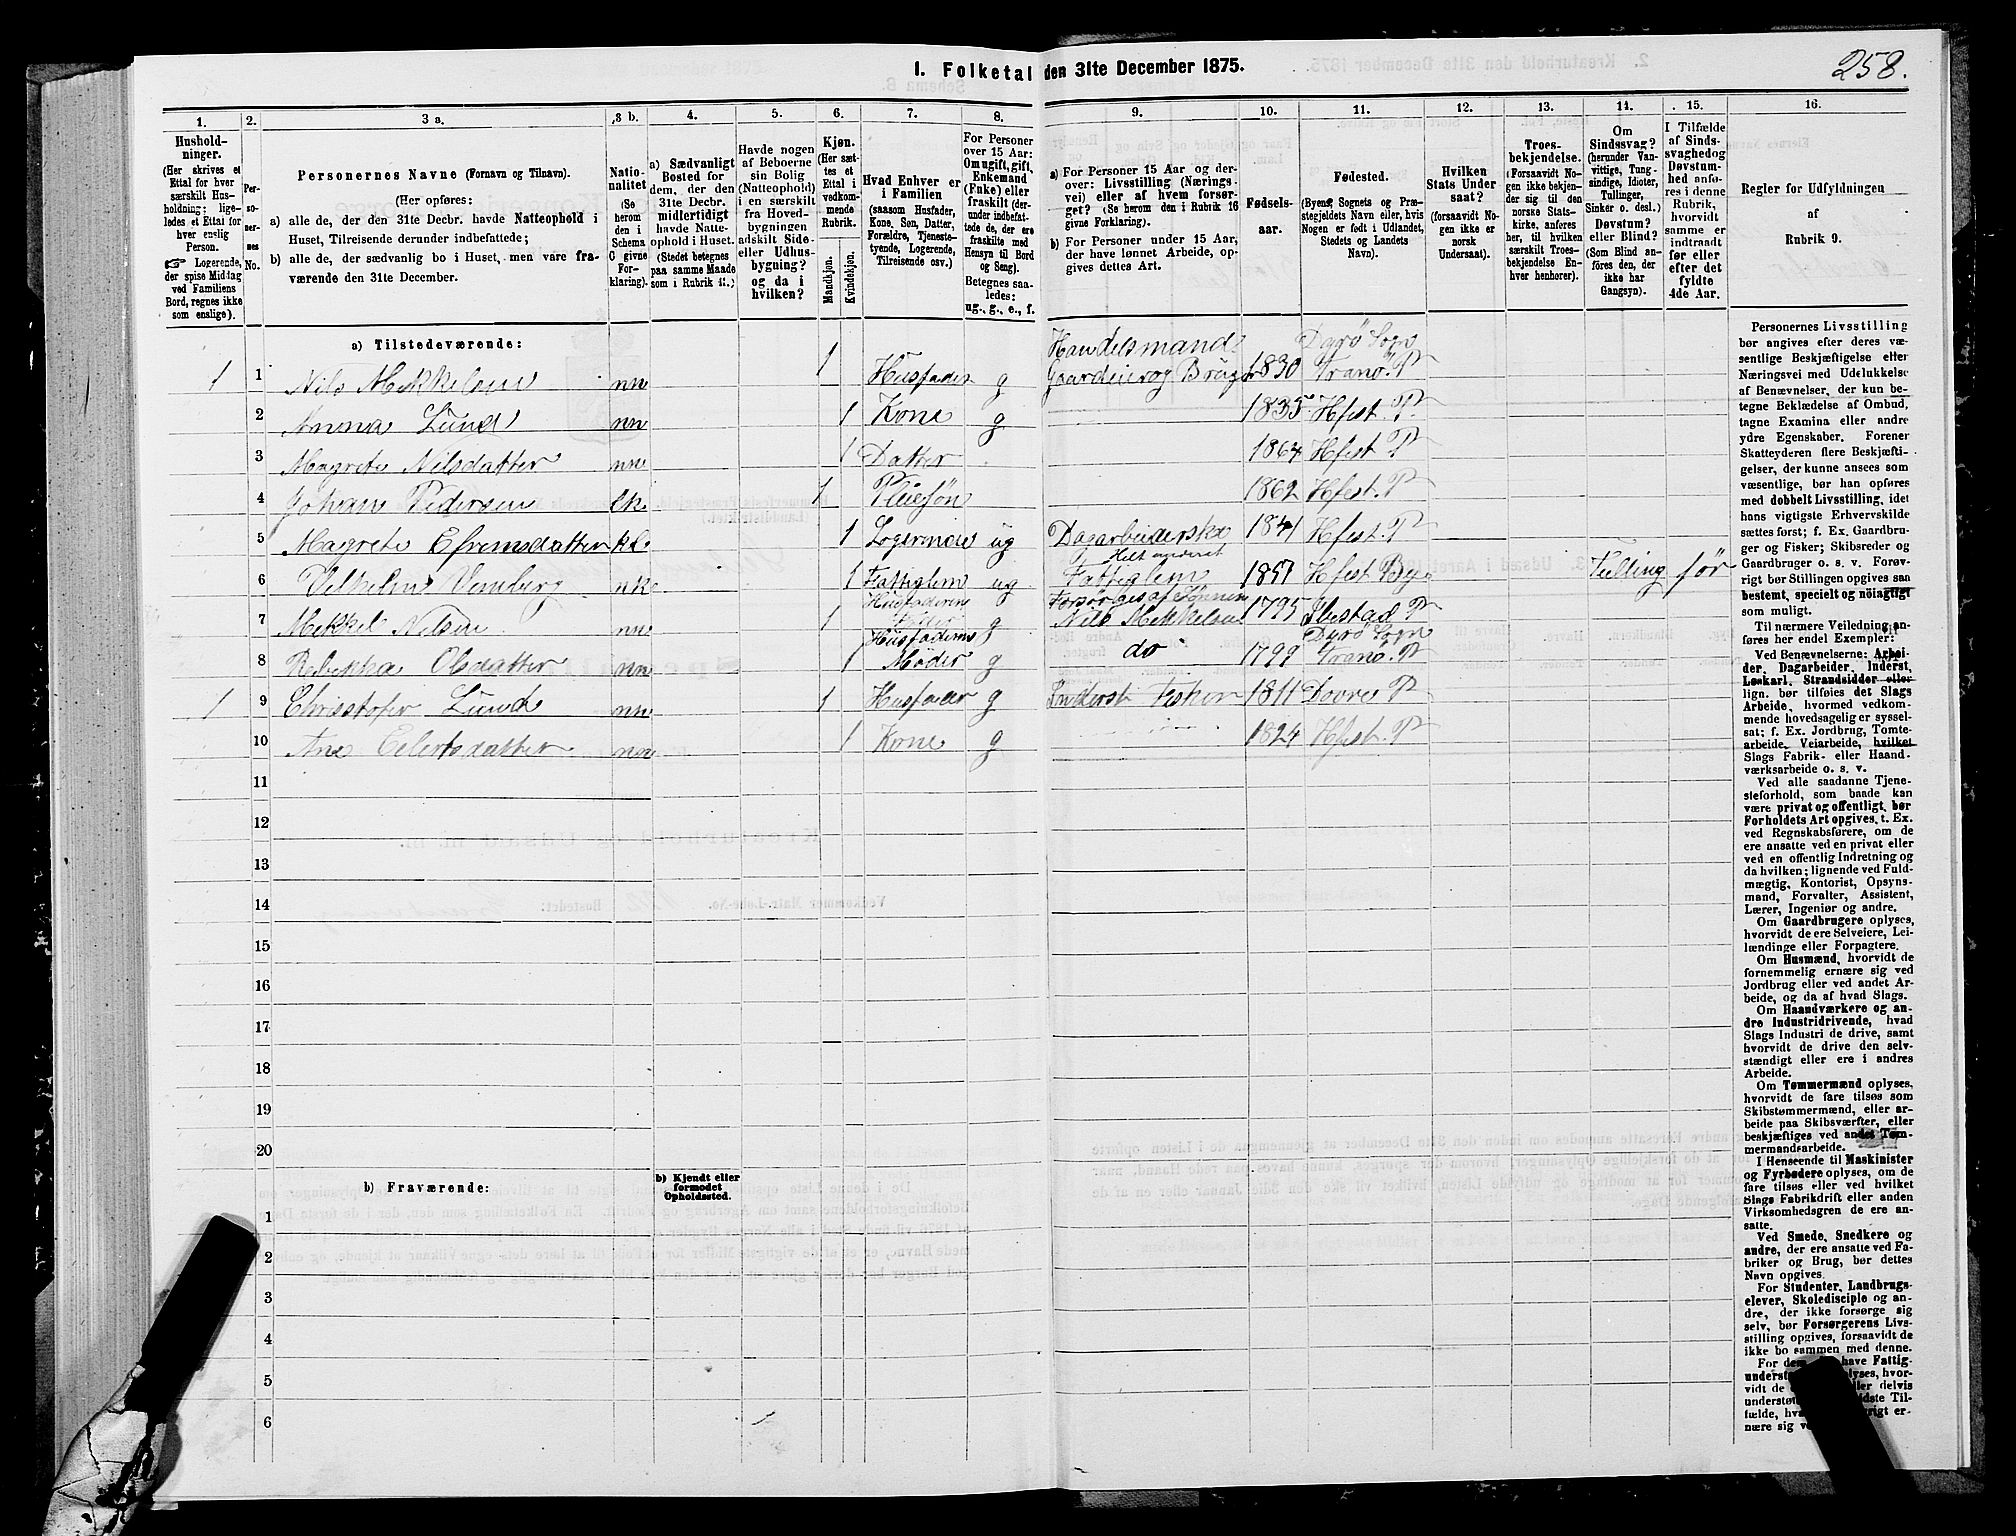 258.
I. Folketal den 31te December 1875.
1. 2. 3 a. 3 b. 4. 5. 6. 7. 8. 9. 10. 11. 12. 13. 14. 15. 16.
Hushold-
ninger.
(Her skrives et
Ettal for hver
særskilt Hus-
holdning; lige-
ledes et Ettal for
hver enslig
Person.
☞ Logerende,
der spise Middag
ved Familiens
Bord, regnes ikke
som enslige).
Per-
so-
ner-
nes
No.
Personernes Navne (Fornavn og Tilnavn).
(Her opføres:
a) alle de, der den 31te Decbr. havde Natteophold i
Huset, Tilreisende derunder indbefattede;
b) alle de, der sædvanlig bo i Huset, men vare fra-
værende den 31te December.
Natio-
nalitet
(Se
herom
den i
Schema
C givne
For-
klaring).
a) Sædvanligt
Bosted for
dem, der den
31te Decbr.
midlertidigt
havde Natte-
ophold i Huset.
(Stedet betegnes
paa samme Maade
som i Rubrik 11.)
Havde nogen
af Beboerne
sin Bolig
(Natteophold)
i en særskilt
fra Hoved-
bygningen
adskilt Side-
eller Udhus-
bygning?
og da i
hvilken?
Kjøn.
(Her sæt-
tes et
Ettal i
vedkom-
mende
Rubrik.
Mandkjøn.
Kvindekjøn.
Hvad Enhver er
i Familien
(saasom Husfader,
Kone, Søn, Datter,
Forældre, Tjeneste-
tyende, Logerende,
Tilreisende osv.)
For Personer
over 15 Aar:
Om ugift, gift,
Enkemand
(Enke) eller
fraskilt (der-
under indbefat-
tede de, der ere
fraskilte med
Hensyn til Bord
og Seng).
Betegnes saa-
ledes:
ug., g., e., f.
a) For Personer 15 Aar og der-
over: Livsstilling (Nærings-
vei) eller af hvem forsør-
get? (Se herom den i Rubrik 16
givne Forklaring).
b) For Personer under 15 Aar,
der have lønnet Arbeide, op-
gives dettes Art.
Fødsels-
aar.
Fødested.
(Byens, Sognets og Præ-
stegjeldets Navn eller, hvis
Nogen er født i Udlandet,
Stedets og Landets
Navn).
Hvilken
Stats Under
saat?
(forsaavidt No-
gen ikke er
norsk
Undersaat).
Troes-
bekjendelse.
(Forsaavidt No-
gen ikke bekjen-
der sig til den
norske Stats-
kirke, anføres
her, til hvilken
særskilt Troes-
bekjendelse En-
hver henhører).
Om
Sindssvag?
(herunder Van-
vittige, Tung-
sindige, Idioter,
Tullinger,
Sinker o. desl.)
Døvstum?
eller Blind?
(Som Blind an-
føres den, der
ikke har
Gangsyn).
I Tilfælde
af Sinds-
svaghed og
Døvstum-
hed anfø-
res i denne
Rubrik,
hvorvidt
samme er
indtraadt
før eller
efter det
fyldte
4de Aar.
Regler for Udfyldningen
af
Rubrik 9.
a) Tilstedeværende:
1 1 Nils Mekkelsen nn 1 Husfader g Handelsmand Gaardeier og Bruger 1830 Dyrø Sogn Tranø. P
2 Anna Lund nn 1 Kone g 1835 Hfest. P.
3 Magrete Nilsdatter nn 1 Datter 1864 Hfest P
4 Johan Pedersen lk 1 Pleiesøn 1862 Hfest. P
5 Magrete Efremsdatter kk. 1 Logerende ug Dagarbeiderske 1841 Hfest. P
6 Vilhelm Vennberg nk 1 Fattiglem ug Helt underst Fattiglem 1851 Hfest By Tulling før
7 Mekkel Nilsen nn 1 Husfaderens g Forsørges af Sønnen Nils Mekkelsen 1795 Ibestad P
8 Rebekka Olsdatter nn 1 Husfaderns Moder g do 1799 Dyrø Sogn Tranø. P
1 9 Christofer Lund nn 1 Husfader g Inderst Fisker 1811 Dovre P
10 Ane Eilertsdatter nn 1 Kone g 1824 Hfest. P
11
12
13
14
15
16
17
18
19
20
b) Fraværende:
b) Kjendt eller
formodet
Opholdssted.
1
2
3
4
5
6
Personernes Livsstilling
bør angives efter deres væ-
sentlige Beskjæftigelse eller
Næringsvei med Udelukkelse
af Benævnelser, der kun be-
tegne Beklædelse af Ombud,
tagne Examina eller andre
ydre Egenskaber. Forener
Skatteyderen flere Beskjæfti-
gelser, der kunne ansees som
væsentlige, bør han opføres
med dobbelt Livsstilling, idet
hans vigtigste Erhvervskilde
sættes først; f. Ex. Gaardbru-
ger og Fisker; Skibsreder og
Gaardbruger o. s. v. Forøv-
rigt bør Stillingen opgives saa
bestemt, specielt og nøiagtigt
som muligt.
Til nærmere Veiledning an-
føres her endel Exempler:
Ved Benævnelserne: Arbei-
der, Dagarbeider, Inderst,
Løskarl, Strandsidder eller
lign. bør tilføies det Slags
Arbeide, hvormed vedkom-
mende hovedsagelig er syssel-
sat; f. Ex. Jordbrug, Tomte-
arbeide, Veiarbeide, hvilket
Slags Fabrik- eller Haand-
værksarbeide o. s. v.
Ved alle saadanne Tjene-
steforhold, som baade kan
være privat og offentligt, bør
Forholdets Art opgives, t. Ex.
ved Regnskabsførere, om de
ere ansatte ved en privat eller
ved en offentlig Indretning og
da hvilken; lignende ved Fuld-
mægtig, Kontorist, Opsyns-
mand, Forvalter, Assistent,
Lærer, Ingeniør og andre.
Om Gaardbrugere oplyses,
hvorvidt de ere Selveiere, Lei-
lændinge eller Forpagtere.
Om Husmænd, hvorvidt de
fornemmelig ernære sig ved
Jordbrug eller ved andet Ar-
beide, og da af hvad Slags.
Om Haandværkere og an-
dre Industridrivende, hvad
Slags Industri de drive, samt
hvorvidt de drive den selv-
stændigt eller ere i andres
Arbeide.
Om Tømmermænd oplyses,
hvorvidt de fare tilsøs som
Skibstømmermænd, eller ar-
beide paa Skibsværfter, eller
beskjæftiges ved andet Tøm-
mermandsarbeide.
I Henseende til Maskinister
og Fyrbødere oplyses, om de
fare tilsøs eller ved hvilket
Slags Fabrikdrift eller anden
Virksomhedsgren de ere an-
satte.
Ved Smede, Snedkere og
andre, der ere ansatte ved Fa-
briker og Brug, bør dettes
Navn opgives.
For Studenter, Landbrugs-
elever, Skoledisciple og an-
dre, der ikke forsørge sig
selv, bør Forsørgerens Livs-
stilling opgives, forsaavidt de
ikke bo sammen med denne.
For dem have Fattig-
underst lyses, hvor-
vidt de ller delvis
understø dste Til-
fælde, hv rigt er-
nære sig v